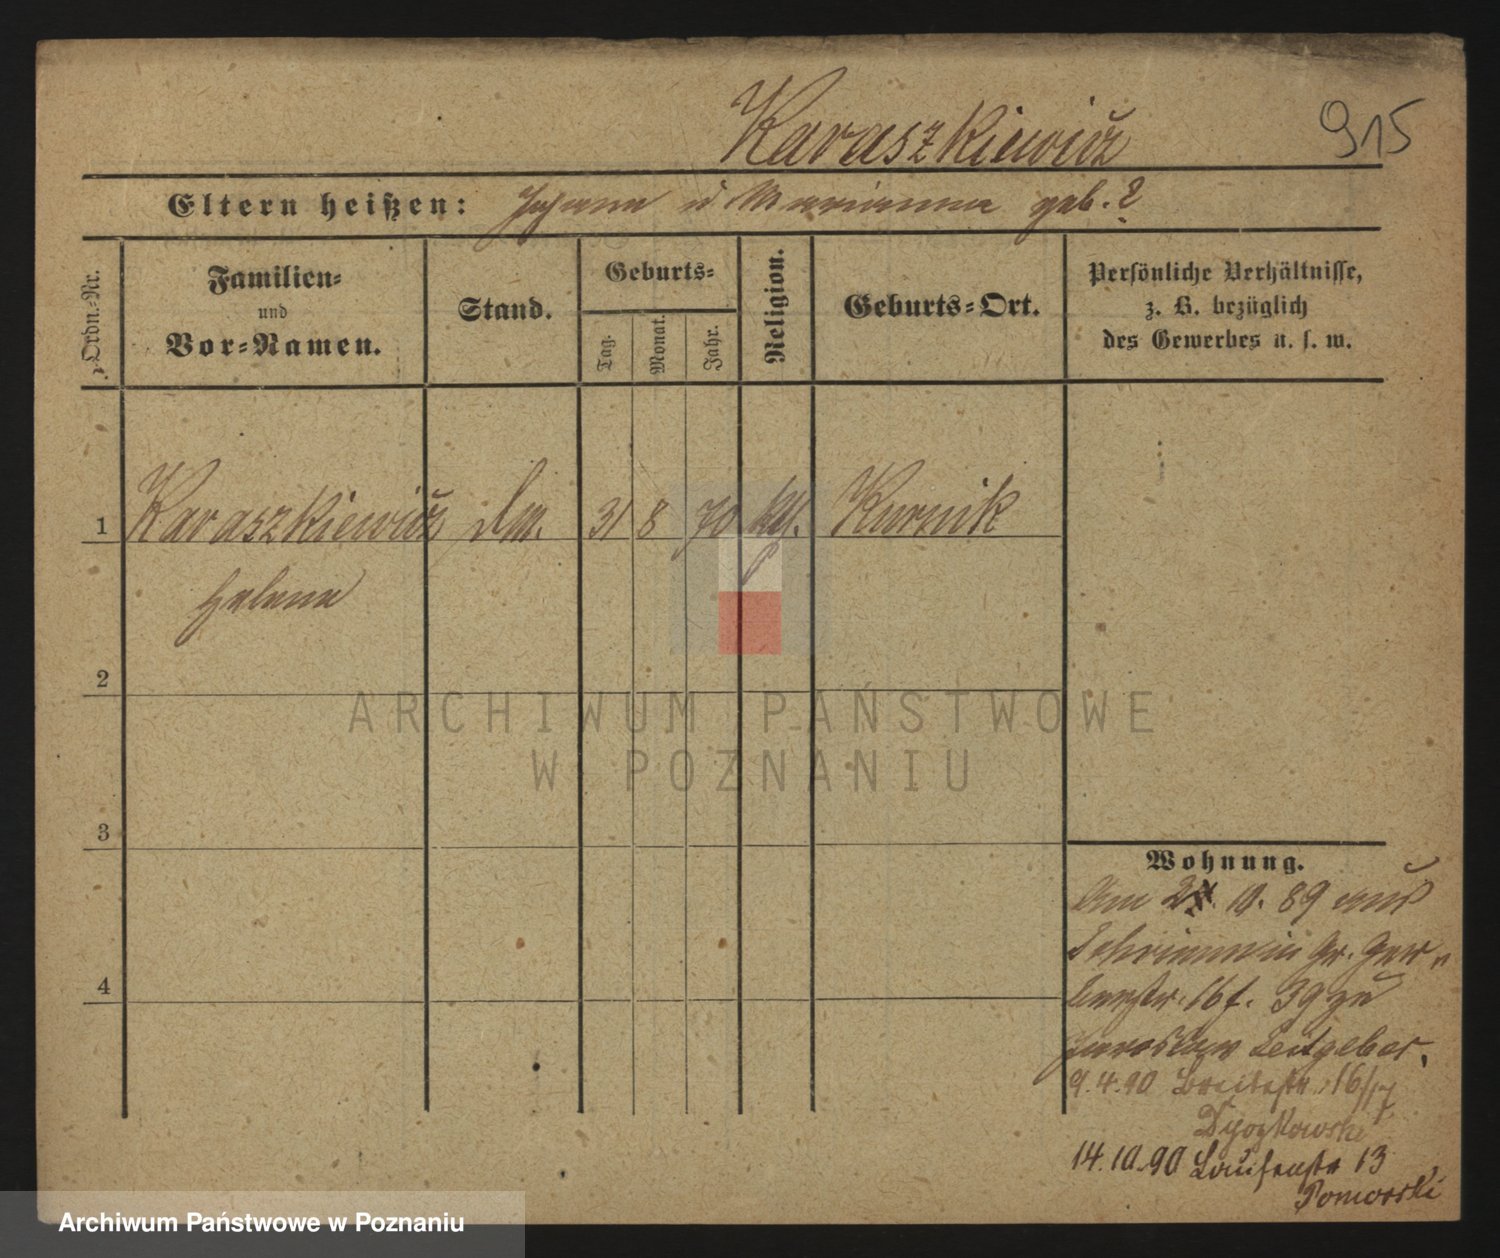 Karaszkiewicz 915
Eltern heißen: Johann u Marianna geb. ?
Ordn.-Nr.
Familien-
und
Vor-Namen.
Stand.
Geburts-
Tag.
Monat.
Jahr.
Religion.
Geburts-Ort.
Persönliche Verhältnisse,
z. B. bezüglich
des Gewerbes u. s. w.
1 Karaszkiewicz Dm. 31 8 70 kth. Kurnik
Helena
2
3
4
Wohnung.
Am 2. 10. 89 aus
Schrimm in Gr. Ger-
berstr. 16 f. 39 zu
Jaroslaw Leitgeber.
9.4.90 Breitestr. 16/17
14.10.90 13
Pomorski
ARCHIWUM PAŃSTWOWE
W POZNANIU
Archiwum Państwowe w Poznaniu